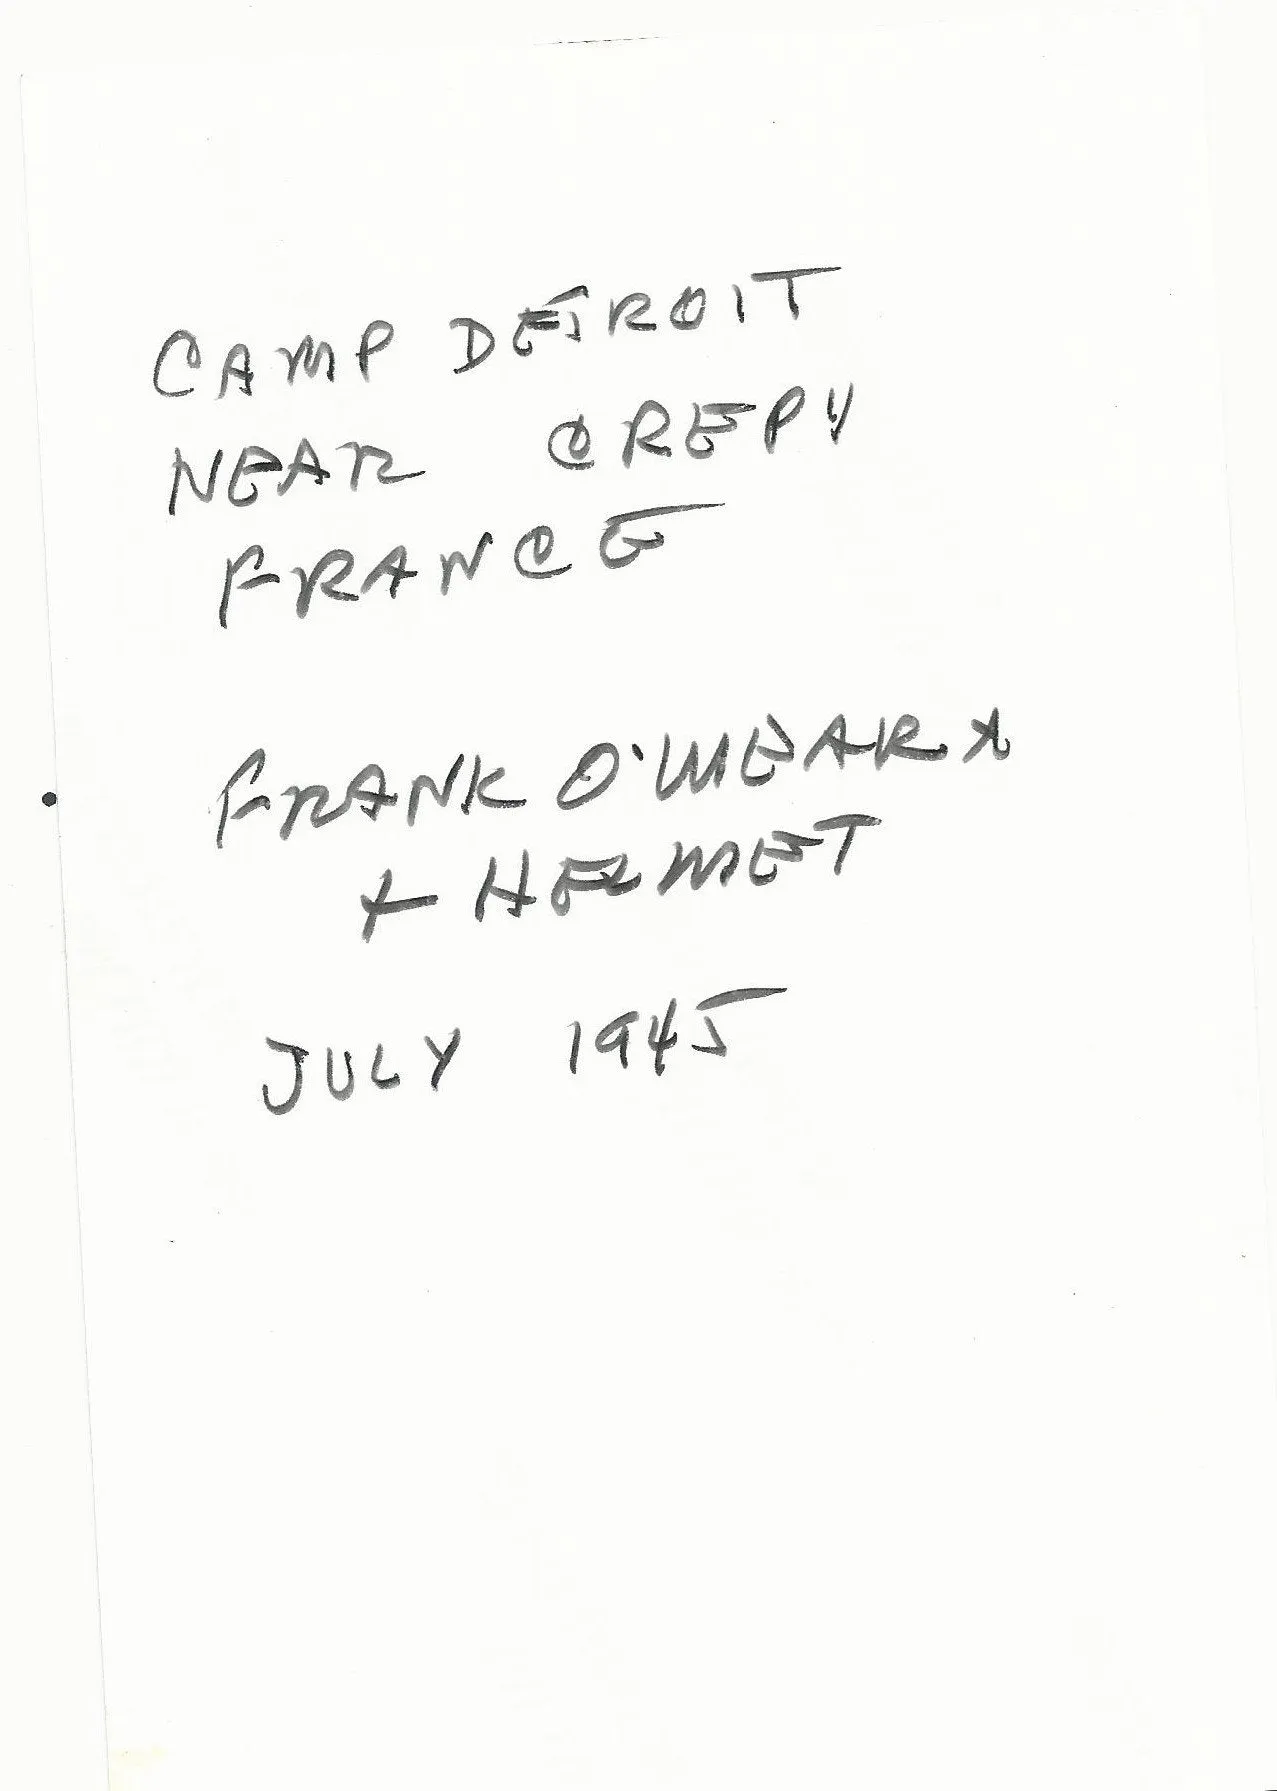 CAMP DETROIT
NEAR CREPY
FRANCE
FRANK O'MEARA
+ HELMET
JULY 1945